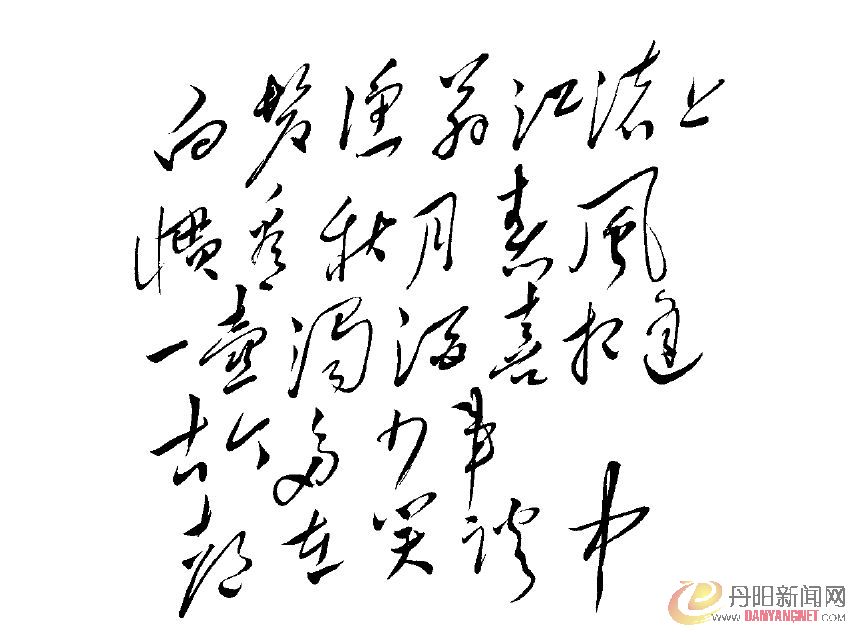 白髮漁翁江渚上
慣看秋月春風
一壺濁酒喜相逢
古今多少事
都在笑談中
丹阳新闻网
DANYANGNET.COM